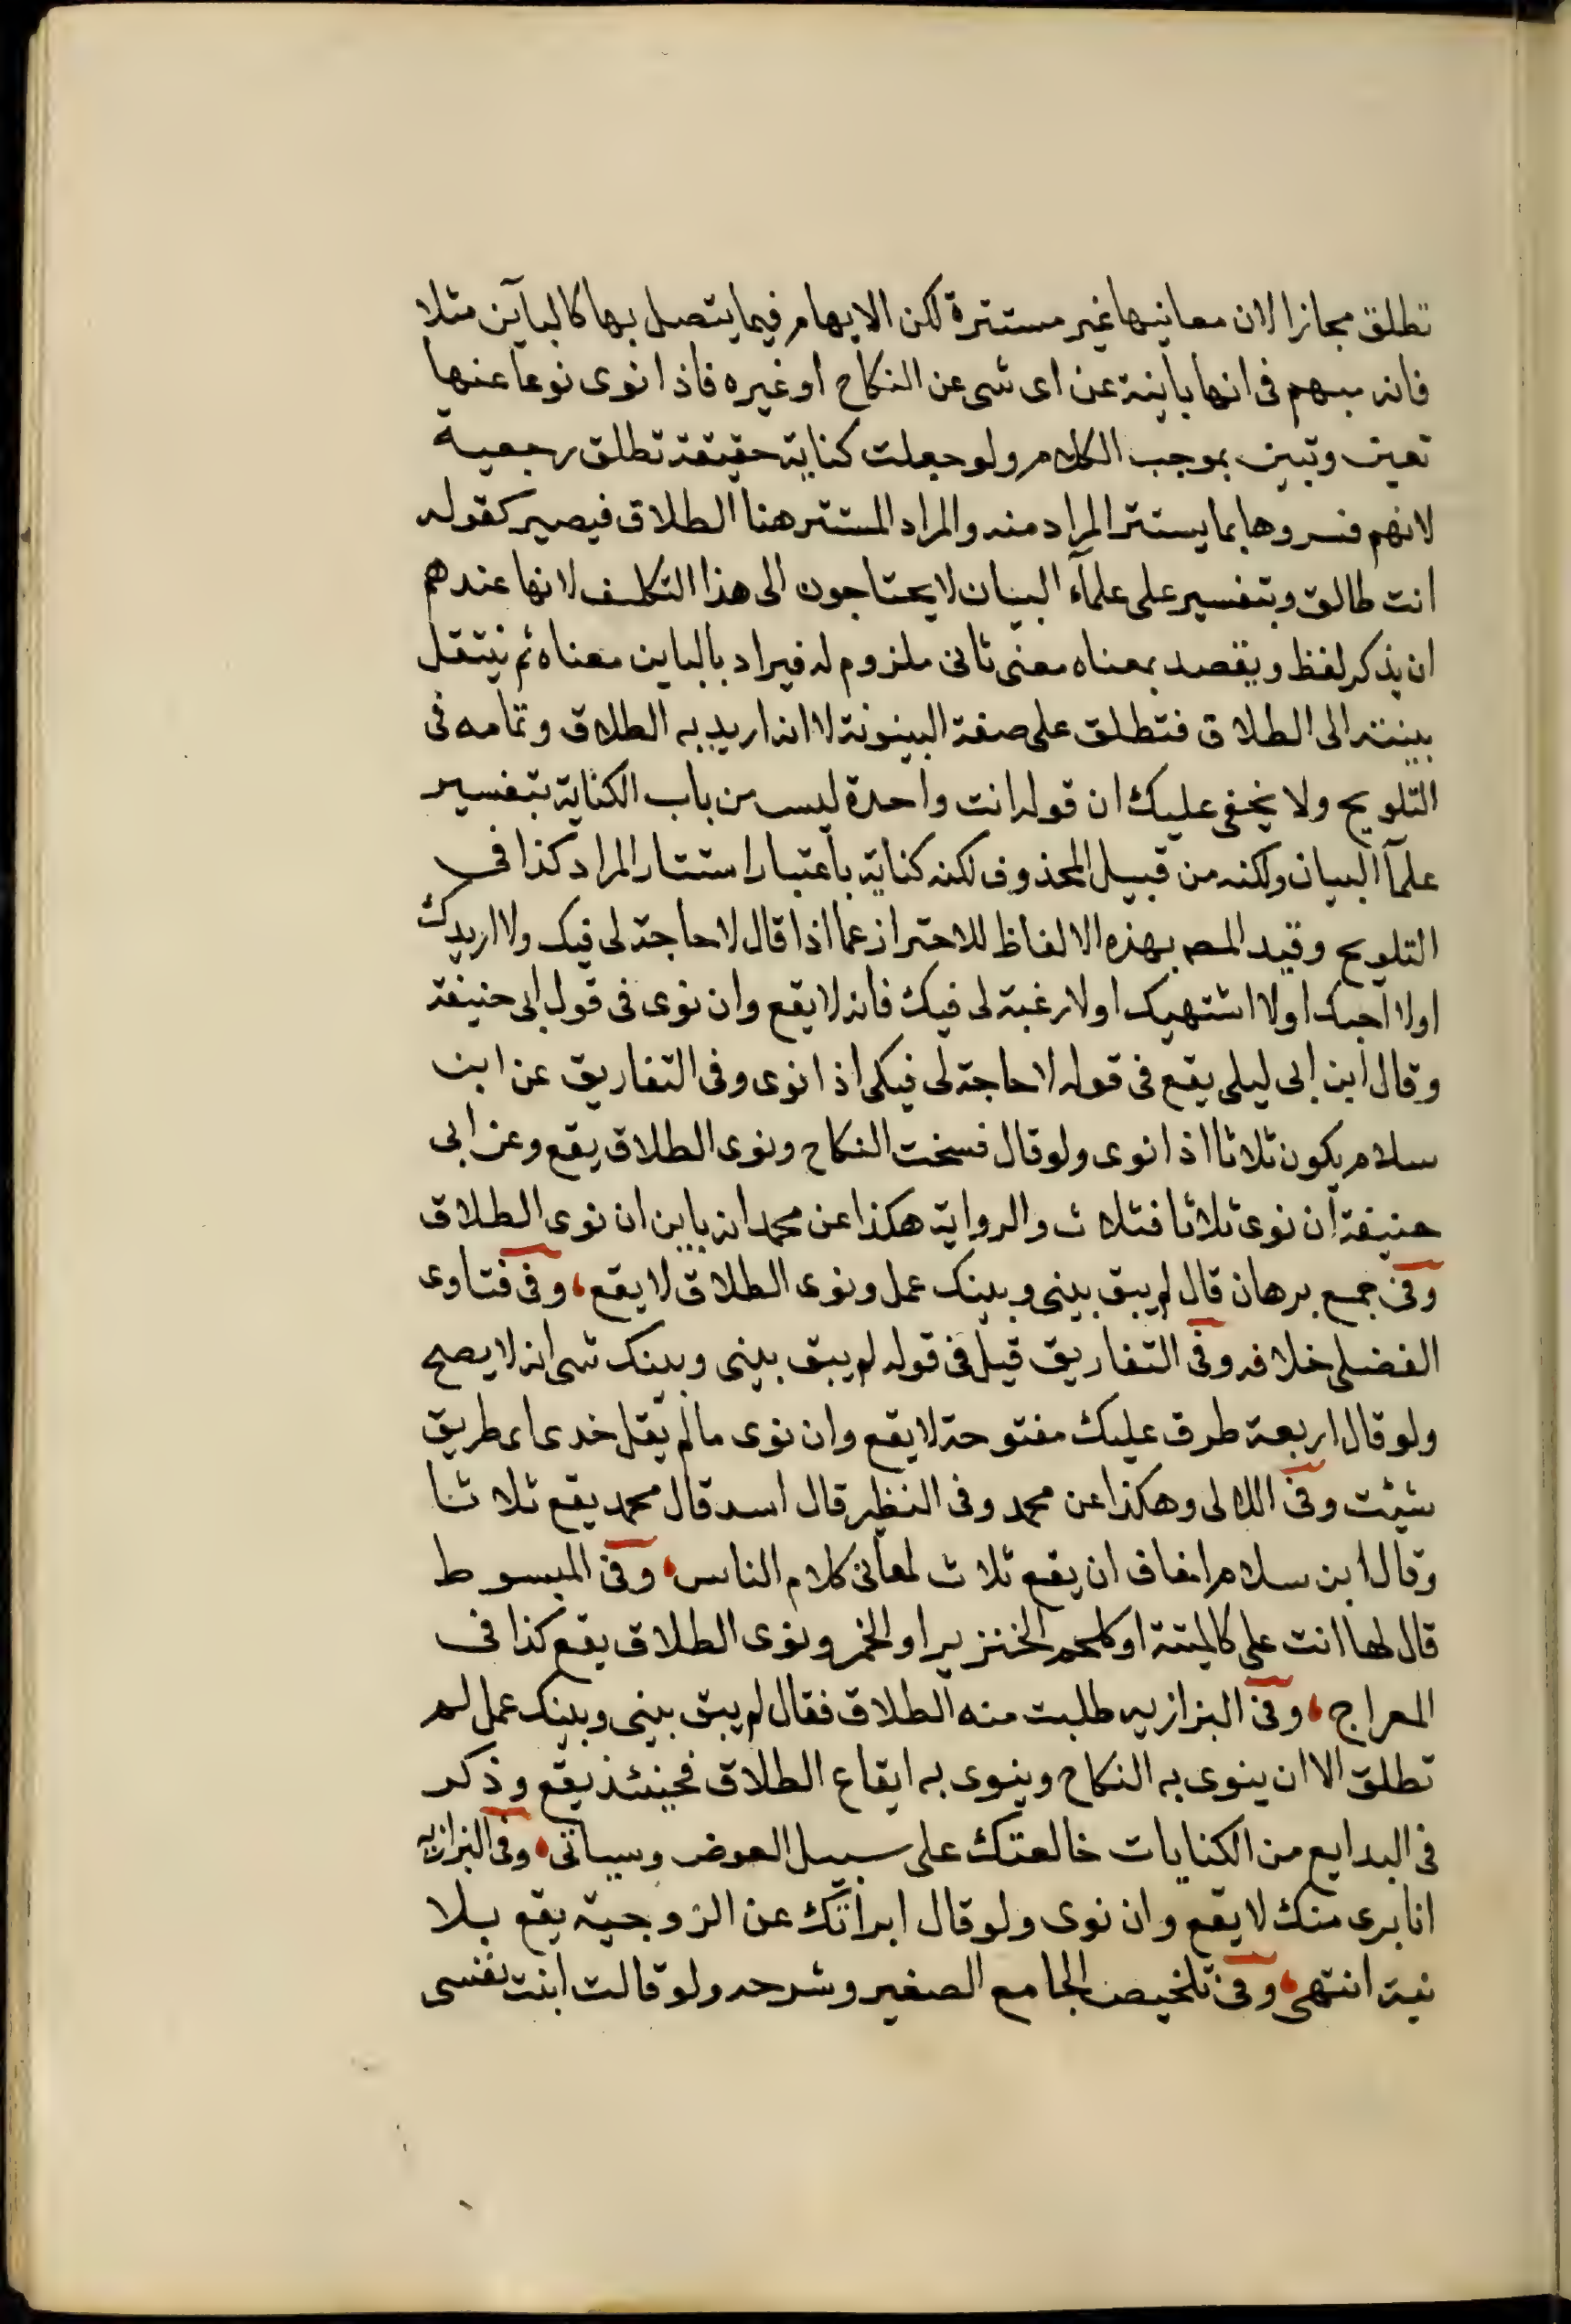 تطلق مجازا لان معانيها غير مستترة لكن الابهام فيما يتصل بها كالبآين مثلا
فانه مبهم فى انها باينة عن اى شى عن النكاح او غيره فاذا نوى نوعا عنها
تعين وتبين بموجب الكلام ولو جعلت كناية حقيقة تطلق رجعية
لانهم فسروها بما يستتر المراد منه والمراد المستتر هنا الطلاق فيصير كقوله
انت طالق وبتفسير على علمآء البيان لا يحتاجون الى هذا التكلف لانها عندهم
ان يذكر لفظ ويقصد بمعناه معنى ثانى ملزوم له فيراد بالباين معناه ثم ينتقل
بنيته الى الطلاق فتطلق على صفة البينونة لا انه اريد به الطلاق وتمامه فى
التلويح ولا يخفى عليك ان قوله انت واحدة ليس من باب الكناية بتفسير
علمآ البيان ولكنه من قبيل المحذوف لكنه كناية باعتبار استتار المراد كذا فى
التلويح وقيد المص بهذه الالفاظ للاحتراز عما اذا قال لا حاجة لى فيك ولا اريدك
اولا احبك اولا اشتهيك اولا رغبة لى فيك فانه لا يقع وان نوى فى قول ابى حنيفة
وقال ابن ابى ليلى يقع فى قوله لا حاجة لى فيكى اذا نوى وفى التفاريق عن ابن
سلام يكون ثلاثا اذا نوى ولو قال فسخت النكاح ونوى الطلاق يقع وعن ابى
حنيفة ان نوى ثلاثا فثلاث والرواية هكذا عن محمد انه باين ان نوى الطلاق
وفى جمع برهان قال لم يبق بينى وبينك عمل ونوى الطلاق لا يقع، وفى فتاوى
الفضلى خلافه وفى التفاريق قيل فى قوله لم يبق بينى وبينك شى انه لا يصح
ولو قال اربعة طرق عليك مفتوحة لا يقع وان نوى ما لم يقل خدى اى طريق
شيئت وفى اللالى وهكذا عن محمد وفى النظير قال اسد قال محمد يقع ثلاثا
وقال ابن سلام اخاف ان يقع ثلاث لمعانى كلام الناس، وفى المبسوط
قال لها انت على كالميتة او كلحم الخنزير او الخمر ونوى الطلاق يقع كذا فى
المعراج، وفى البزازيه طلبت منه الطلاق فقال لم يبق بينى وبينك عمل لم
تطلق الا ان ينوى به النكاح وينوى به ايقاع الطلاق فحينئذ يقع وذكر
فى البدايع من الكنايات خالعتك على سبيل العوض وسياتى، وفى البزازيه
انا برى منك لا يقع وان نوى ولو قال ابراتك عن الزوجية يقع بلا
نية انتهى، وفى تلخيص الجامع الصغير وشرحه ولو قالت ابنت نفسى